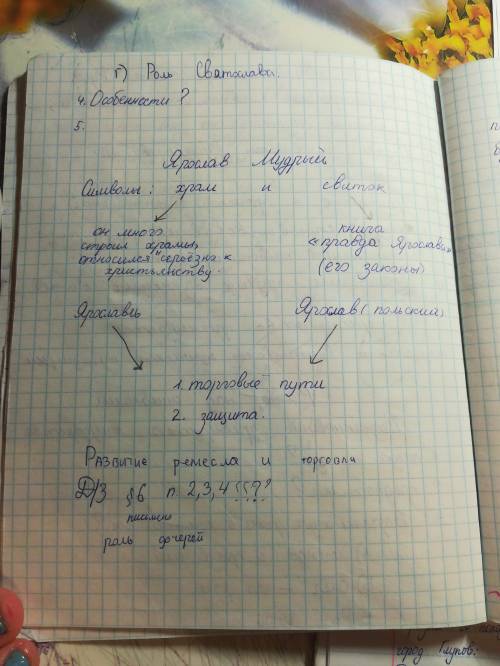 г) Роль Святослава.
4. Особенности ?
5.
Ярослав Мудрый
Символы: храм и свиток
он много строил храмы, относился серьёзна к христьльству.
книга «правда Ярослава» (его законы)
Ярославль Ярослав (польский)
1. торговые пути
2. защита.
Развитие ремесла и торговли
Д/З §6 п. 2,3,4 ???
письмено
роль дочерей
город Глупов: